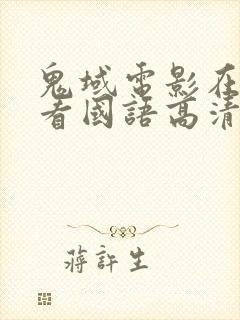 鬼域電影在
看國語高清
蔣許生